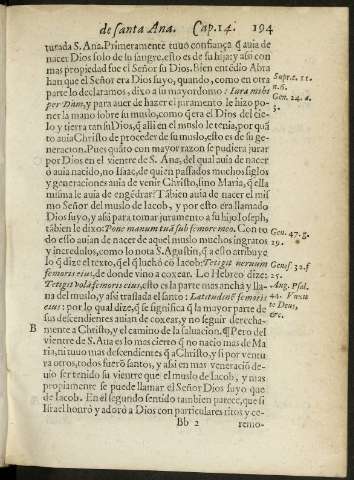 de santa Ana. Cap. 14. 194
turada S. Ana. Primeramente tuuo confiança q̃ auia de
nacer Dios solo de su sangre, esto es de su hija: y assi con
mas propiedad fue el Señor su Dios. Bien entẽdio Abra
han que el Señor era Dios suyo, quando, como en otra
parte lo declaramos, dixo a su mayordomo: Iura mihi
per Dũm, y para auer de hazer el juramento le hizo po-
ner la mano sobre su muslo, como q̃ era el Dios del cie-
lo y tierra tan su Dios, q̃ alli en el muslo le tenia, por quã
to auia Christo de proceder de su muslo, esto es de su ge-
neracion. Pues quãto con mayor razon se pudiera jurar
por Dios en el vientre de S. Ana, del qual auia de nacer
ò auia nacido, no Isaac, de quien passados muchos siglos
y generaciones auia de venir Christo, sino Maria, q̃ ella
misma le auia de engẽdrar? Tãbien auia de nacer el mis
mo Señor del muslo de Iacob, y por esto era llamado
Dios suyo, y assi para tomar juramento a su hijo Ioseph,
tãbien le dixo: Pone manum tuã sub femore meo. Con to
do esto auian de nacer de aquel muslo muchos ingratos
y incredulos, como lo nota S. Agustin, q̃ a esto atribuye
lo q̃ dize el texto, q̃ el q̃ luchò cõ Iacob: Tetigit neruum
femoris eius, de donde vino a coxear. Lo Hebreo dize:
Tetigit volã femoris eius, esto es la parte mas ancha y lla-
na del muslo, y assi traslada el santo: Latitudinẽ femoris
eius: por lo qual dize, q̃ se significa q̃ la mayor parte de
sus descendientes auian de coxear, y no seguir derecha-
mente a Christo, y el camino de la saluacion. ¶ Pero del
vientre de S. Ana es lo mas cierto q̃ no nacio mas de Ma
ria, ni tuuo mas descendientes q̃ a Christo, y si por ventu
ra otros, todos fuerõ santos, y assi en mas veneraciõ de-
uio ser tenido su vientre que el muslo de Iacob, y mas
propiamente se puede llamar el Señor Dios suyo que
de Iacob. En el segundo sentido tambien parece, que si
Israel honrò y adorò a Dios con particulares ritos y ce-
Bb 2 remo-
Supr. c. 11.
n. 6.
Gen. 24. a.
3.
Gen. 47. g.
29.
Genes. 32. f
25.
Aug. Psal.
44.
te Deus,
B